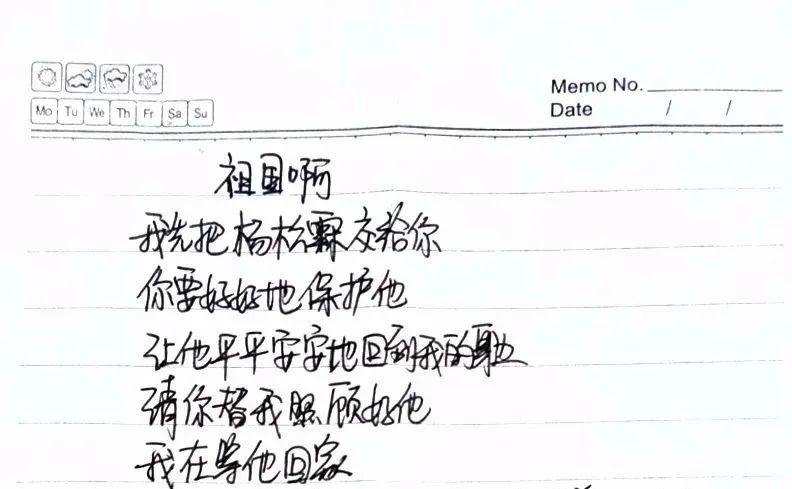 Memo No.
Mo Tu We Th Fr Sa Su
Date / /
祖国啊
我先把杨松霖交给你
你要好好地保护他
让他平平安安地回到我的身边
请你替我照顾好他
我在等他回家